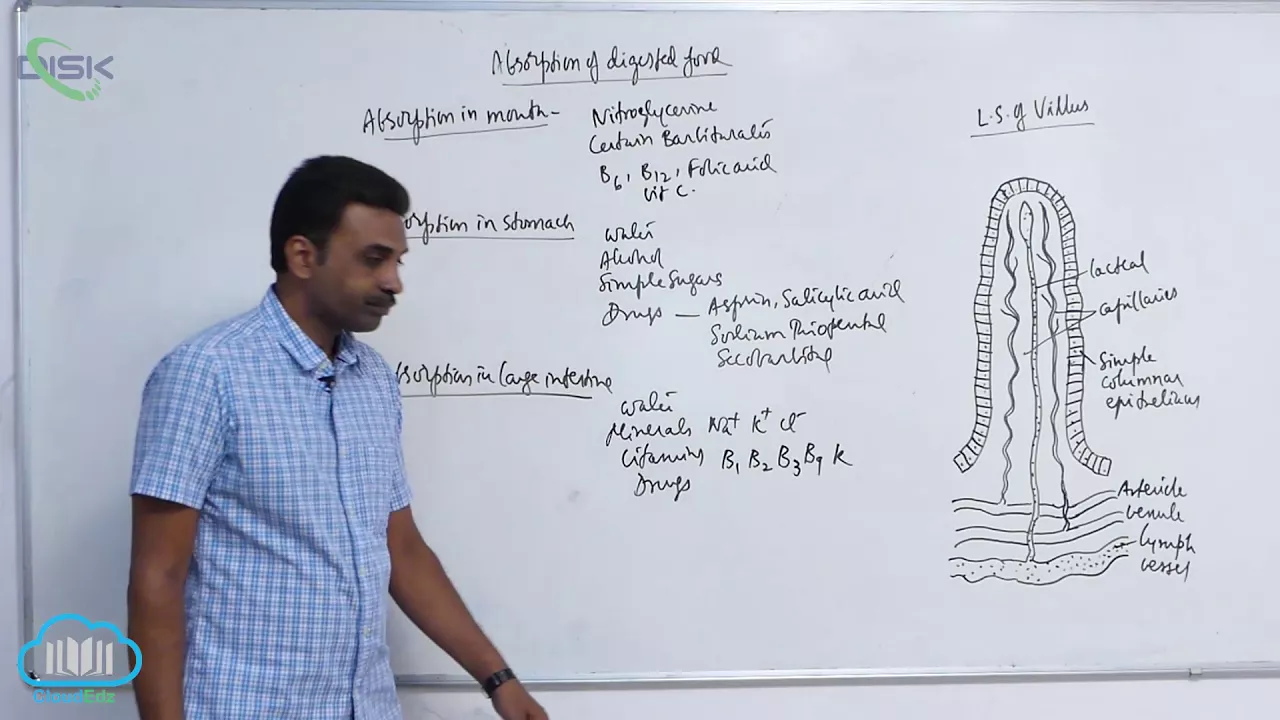 DISK
Absorption of digested food
Absorption in mouth - Nitroglycerine
Certain Barbiturates
B6, B12, Folic acid
Vit C.
orption in stomach
Water
Alcohol
Simple Sugars
Drugs — Asprin, Salicylic acid
Sodium Thiopental
Secobarbital
sorption in large intestine
Water
Minerals Na+ K+ Cl-
Vitamins B1 B2 B3 B9 K
Drugs
L.S. of Villus
lacteal
capillaries
Simple
columnar
epithelium
Arteriole
venule
Lymph
vessel
CloudEdz